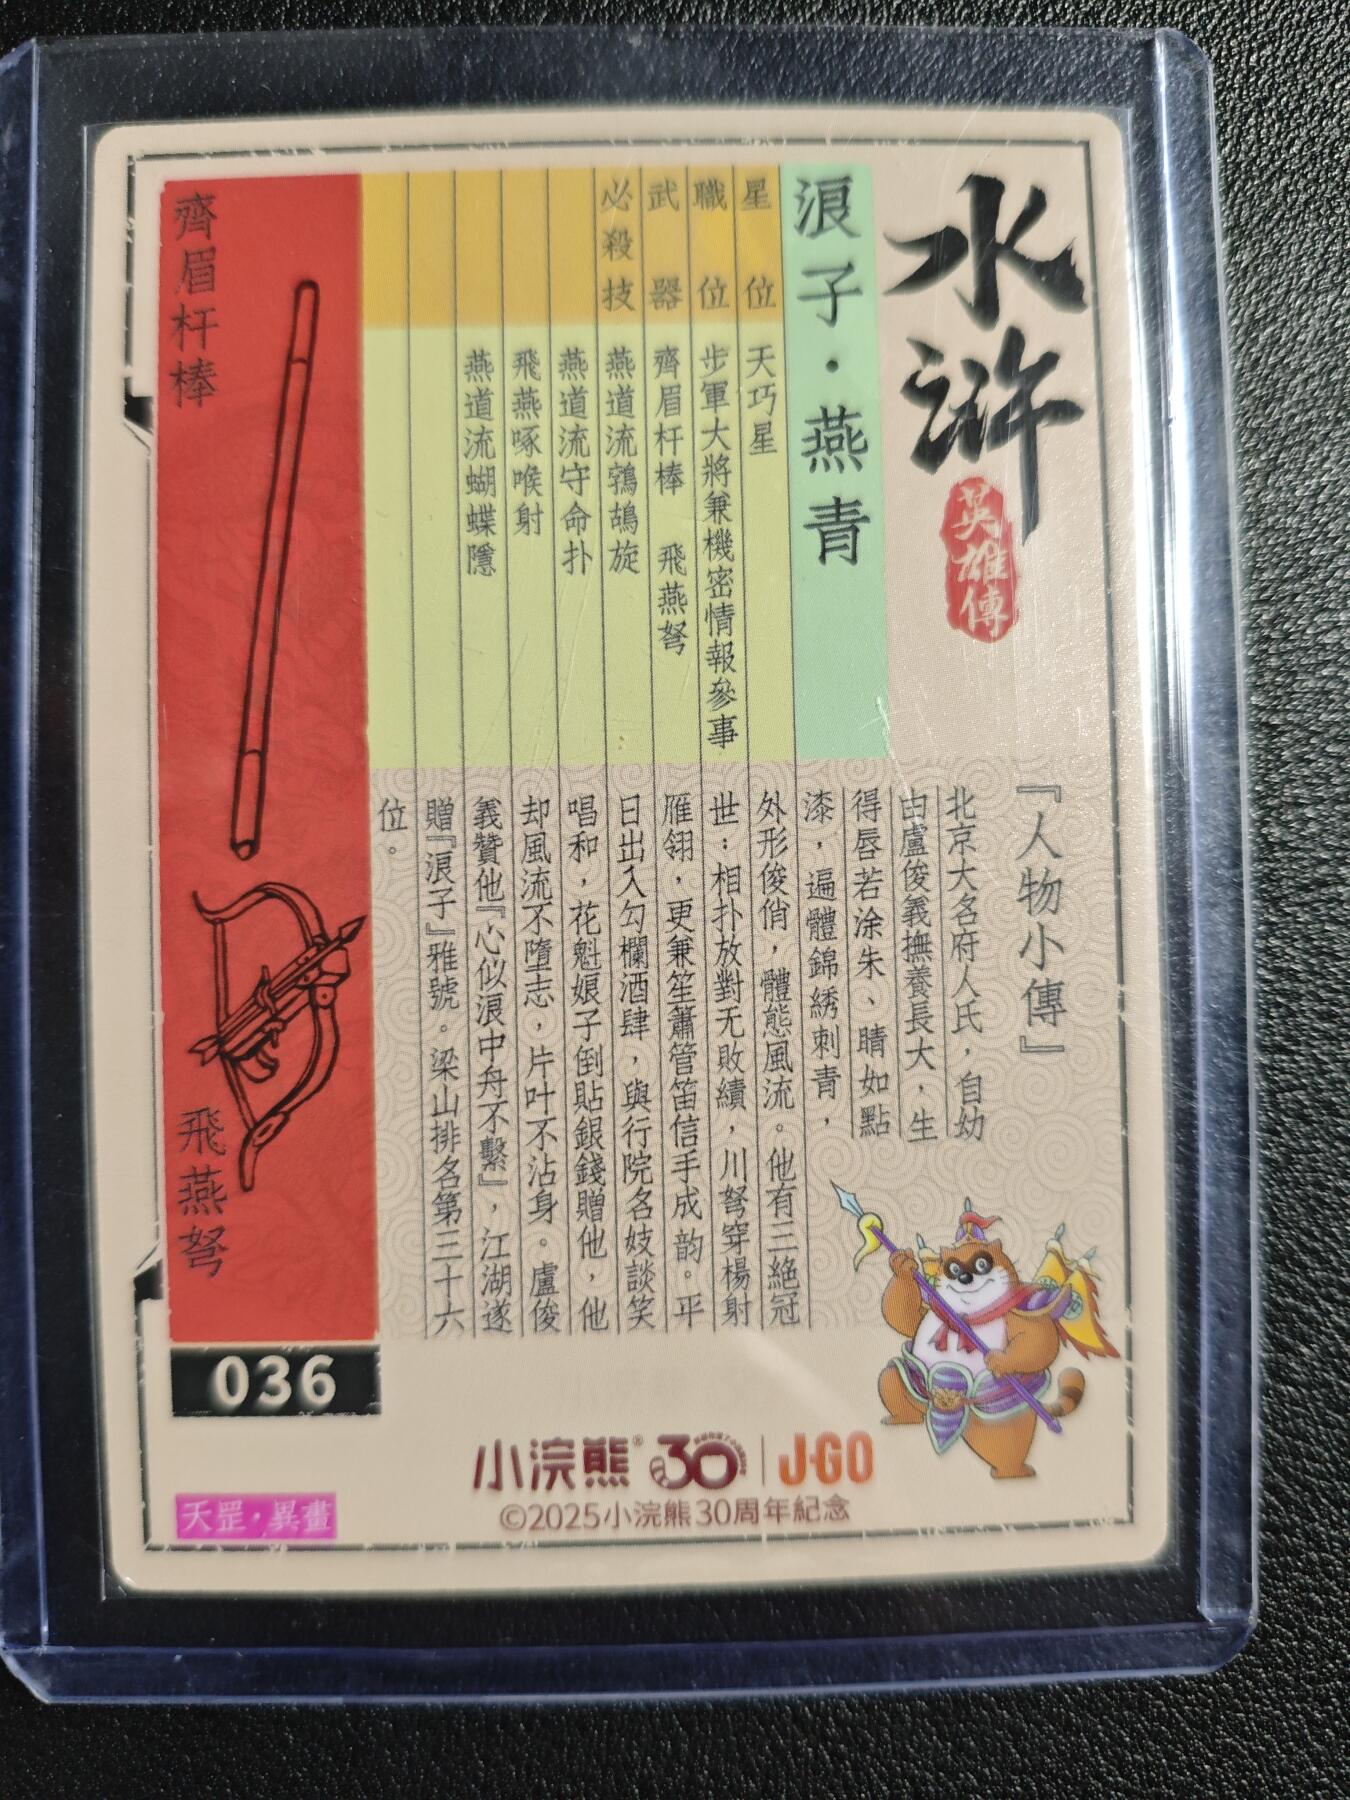 水滸
英雄傳
浪子·燕青
星位 天巧星
職位 步軍大將兼機密情報參事
武器 齊眉杆棒 飛燕弩
必殺技 燕道流鶉鴣旋
燕道流守命扑
飛燕啄喉射
燕道流蝴蝶隱
『人物小傳』
北京大名府人氏，自幼
由盧俊義撫養長大，生
得唇若涂朱、睛如點
漆，遍體錦綉刺青，
外形俊俏，體態風流。他有三絕冠
世：相扑放對无敗績，川弩穿楊射
雁翎，更兼笙簫管笛信手成韵。平
日出入勾欄酒肆，與行院名妓談笑
唱和，花魁娘子倒貼銀錢贈他，他
却風流不墮志，片叶不沾身。盧俊
義贊他『心似浪中舟不繫』，江湖遂
贈『浪子』雅號。梁山排名第三十六
位。
齊眉杆棒
飛燕弩
036
小浣熊® 30 J·GO
©2025小浣熊30周年紀念
天罡·異畫